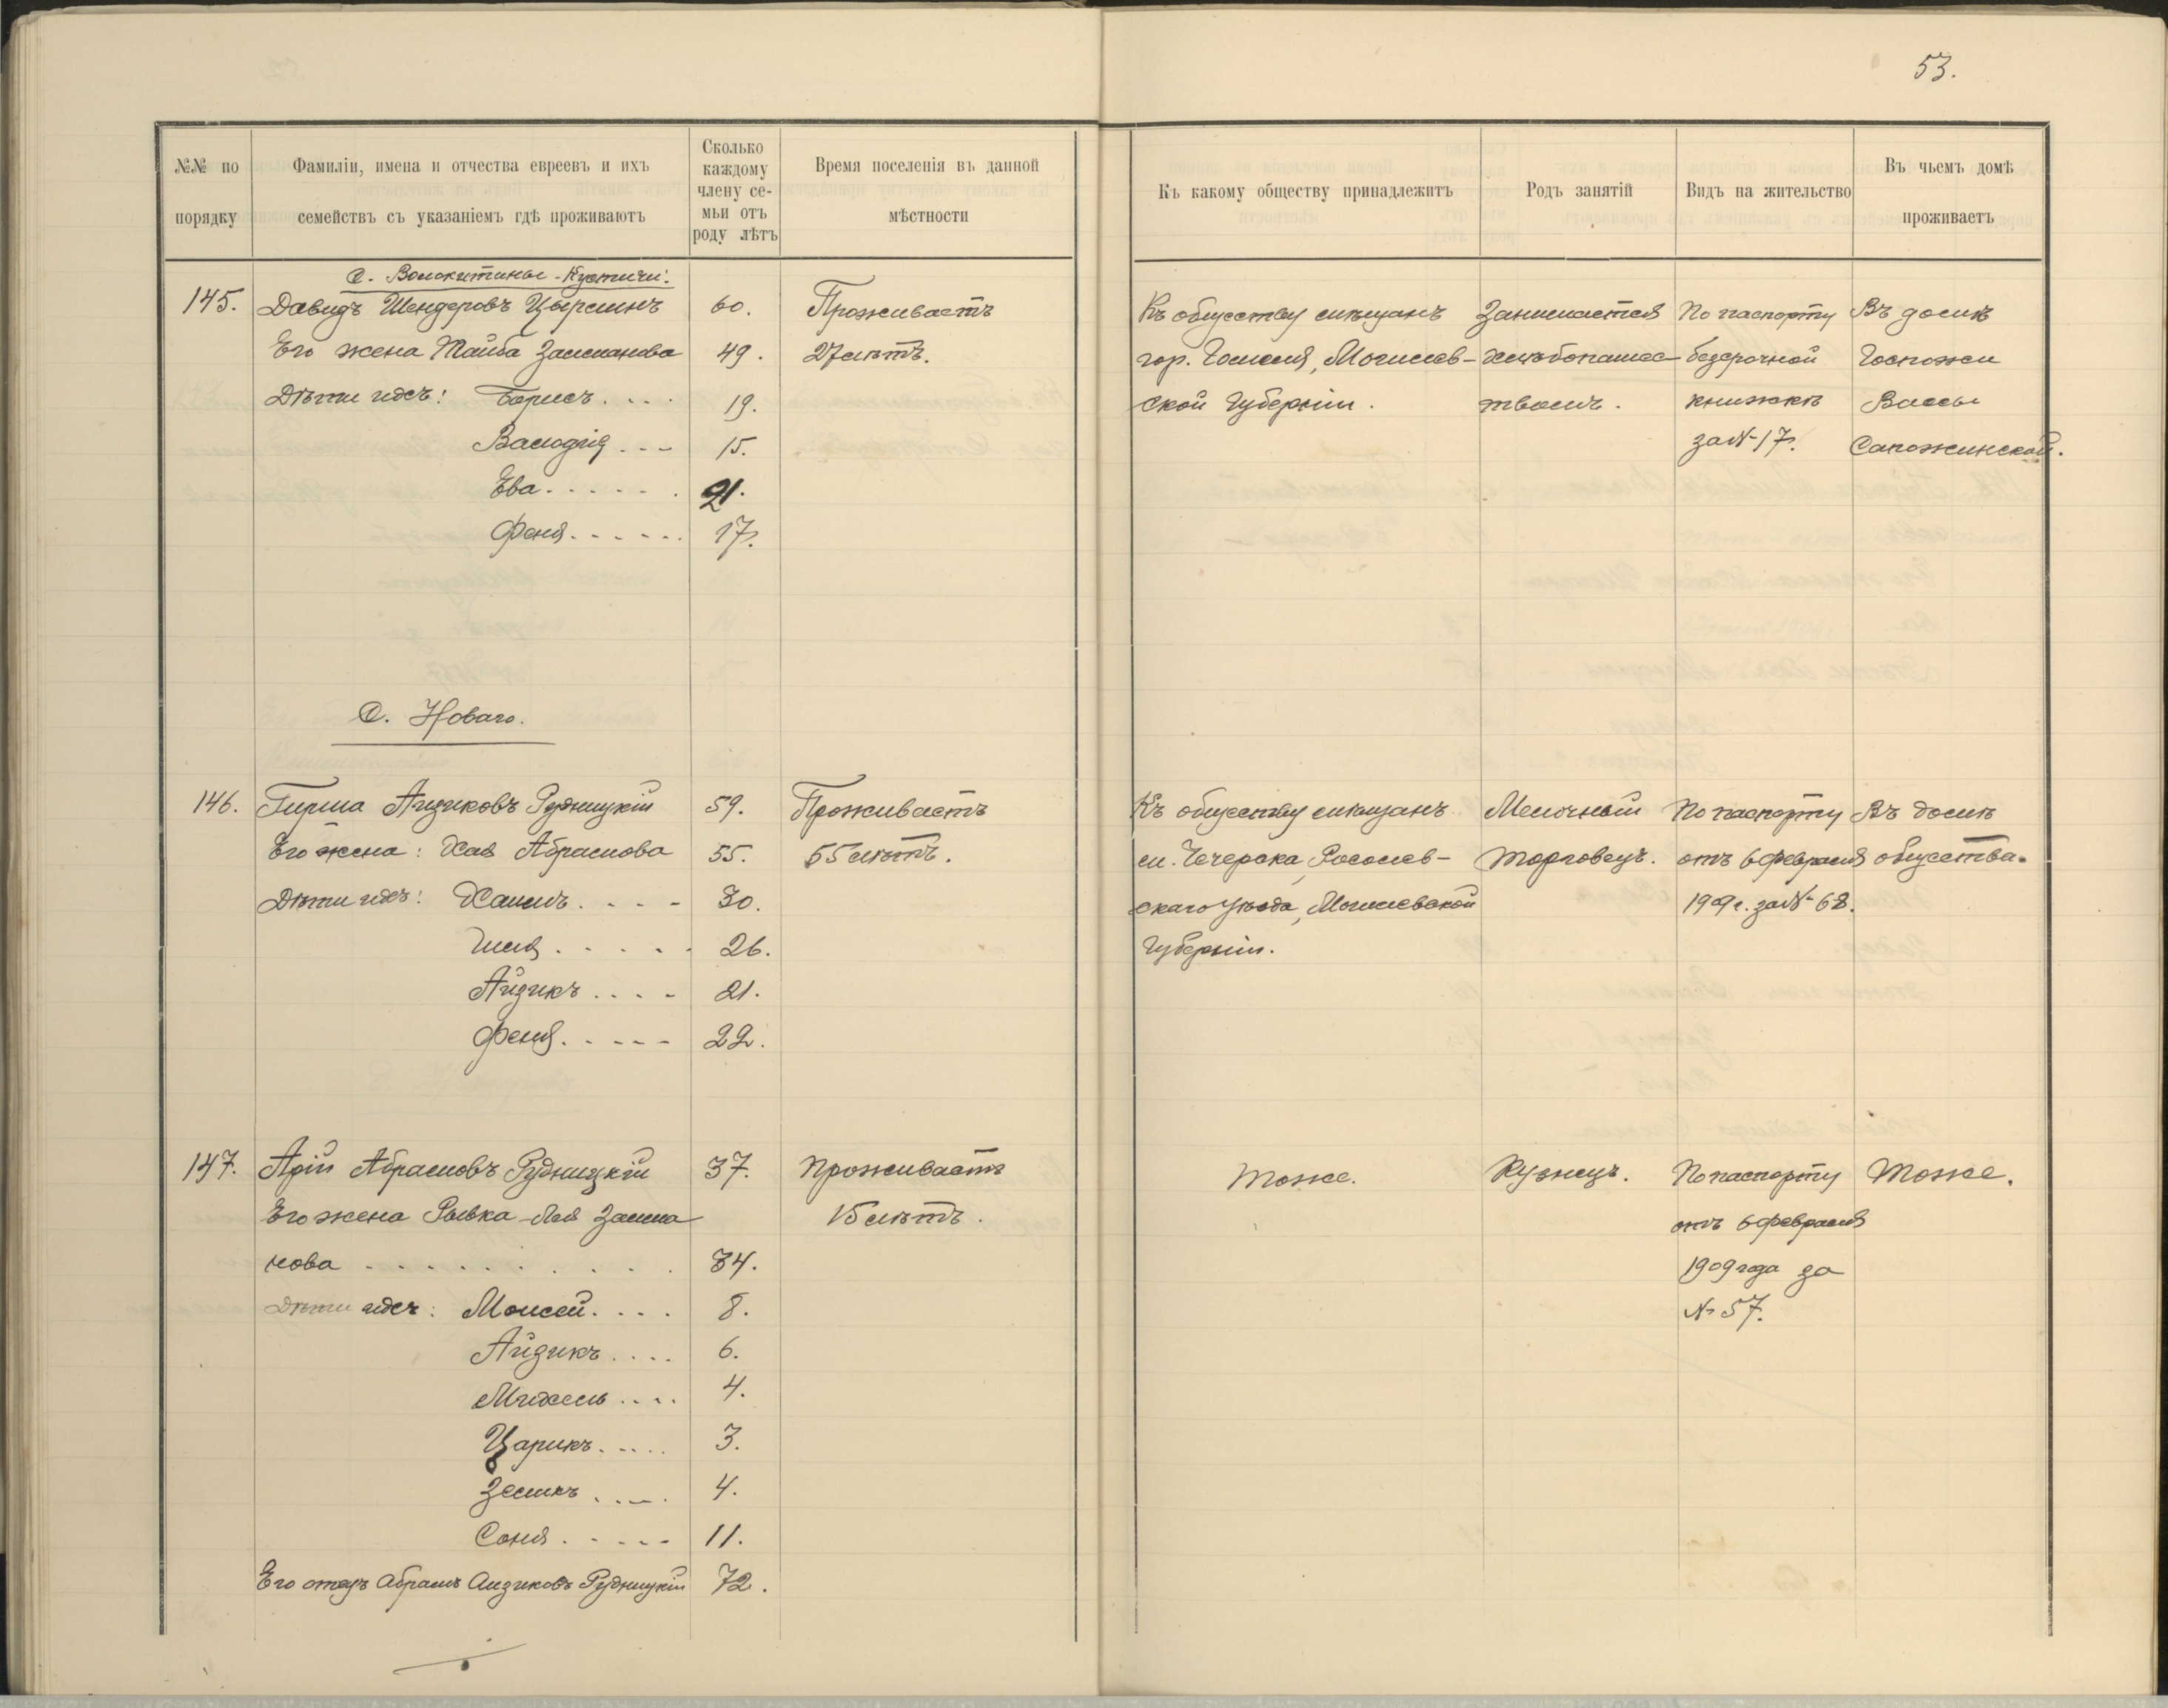 53.
№№ по порядку
Фамиліи, имена и отчества евреевъ и ихъ семействъ съ указаніемъ гдѣ проживаютъ
Сколько каждому члену семьи отъ роду лѣтъ
Время поселенія въ данной мѣстности
Къ какому обществу принадлежитъ
Родъ занятій
Видъ на жительство
Въ чьемъ домѣ проживаетъ
145.
Давидъ Шендеровъ Цырлинъ 60.
Его жена Тайба Залманова 49.
Дѣти ихъ: Борисъ. . . . 19.
15.
Ева. . . . . . 21.
Феня. . . . . . 17.
Проживаетъ
27 лѣтъ.
Къ обществу мѣщанъ
гор. Гомеля, Могилев-
ской Губерніи.
Занимается
хлѣбопашес-
твомъ.
По паспорту
безсрочной
книжкѣ
за № 17.
Въ домѣ
Госпожи
Вассы
Сапожинской.
С. Новаго.
146.
Гирша Айзиковъ Рудницкій 59.
Его жена: Хая Абрамова 55.
Дѣти ихъ: Хаимъ. . . . 30.
26.
Айзикъ . . . . 21.
Феня. . . . . 22.
Проживаетъ
55 лѣтъ.
Къ обществу мѣщанъ
м. Чечерска, Рогачев-
скаго уѣзда, Могилевской
Губерніи.
Мелочный
торговецъ.
По паспорту
отъ 6 февраля
1909 г. за № 68.
Въ домѣ
общества.
147.
Арій Абрамовъ Рудницкій 37.
Его жена Рывка-Лея Залма
нова . . . . . . . . . . 34.
Дѣти ихъ: Моисей. . . . 8.
Айзикъ . . . . 6.
Михель . . . . 4.
Царикъ. . . . . 3.
Зеликъ . . . . 4.
Соня . . . . . 11.
Его отецъ Абрамъ Аизиковъ Рудницкій 72.
Проживаетъ
15 лѣтъ.
Тоже.
Кузнецъ.
По паспорту
отъ 6 февраля
1909 года за
№ 57.
Тоже.